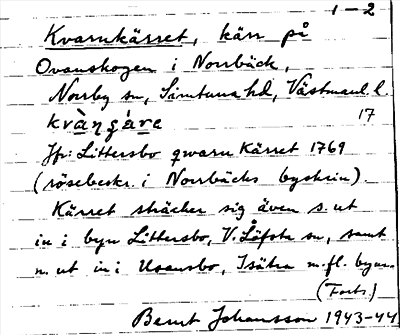 1-2
Kvarnkärret, kärr på
Ovanskogen i Norrbäck,
Norrby sn, Simtuna hd, Västmanl. l.
kvàŋɡáre 17
Jfr: Littersbo qwarn Kärret 1769
(rösebeskr. i Norrbäcks byskrin).
Kärret sträcker sig även s. ut
in i byn Littersbo, V. Löfsta sn, samt
n. ut in i Usansbo, Isätra m. fl. byar.
(Forts.)
Bernt Johansson 1943-44